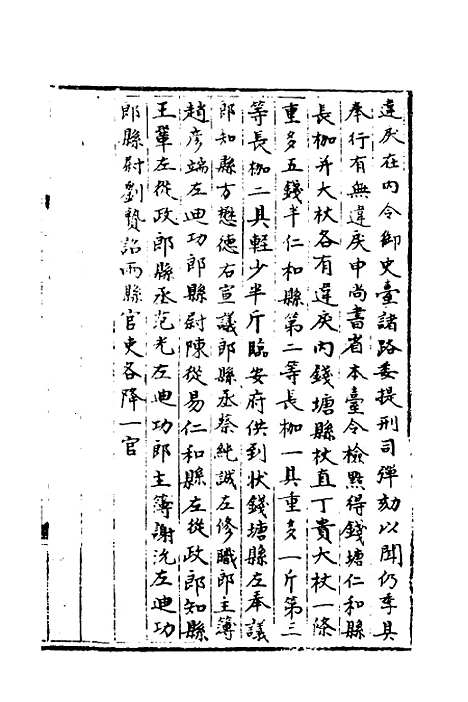 違戾在內令御史臺諸路委提刑司彈劾以聞仍季具
奉行有無違戾申尚書省本臺令檢點得錢塘仁和縣
長枷并大杖各有違戾內錢塘縣杖直丁貴大杖一條
重多五錢半仁和縣第二等長枷一具重多一斤第三
等長枷二具輕少半斤臨安府供到狀錢塘縣左奉議
郎知縣方懋德右宣議郎縣丞蔡純誠左修職郎主簿
趙彥端左迪功郎縣尉陳從易仁和縣左從政郎知縣
王鞏左從政郎縣丞范光左迪功郎主簿謝沇左迪功
郎縣尉劉贄詔兩縣官吏各降一官